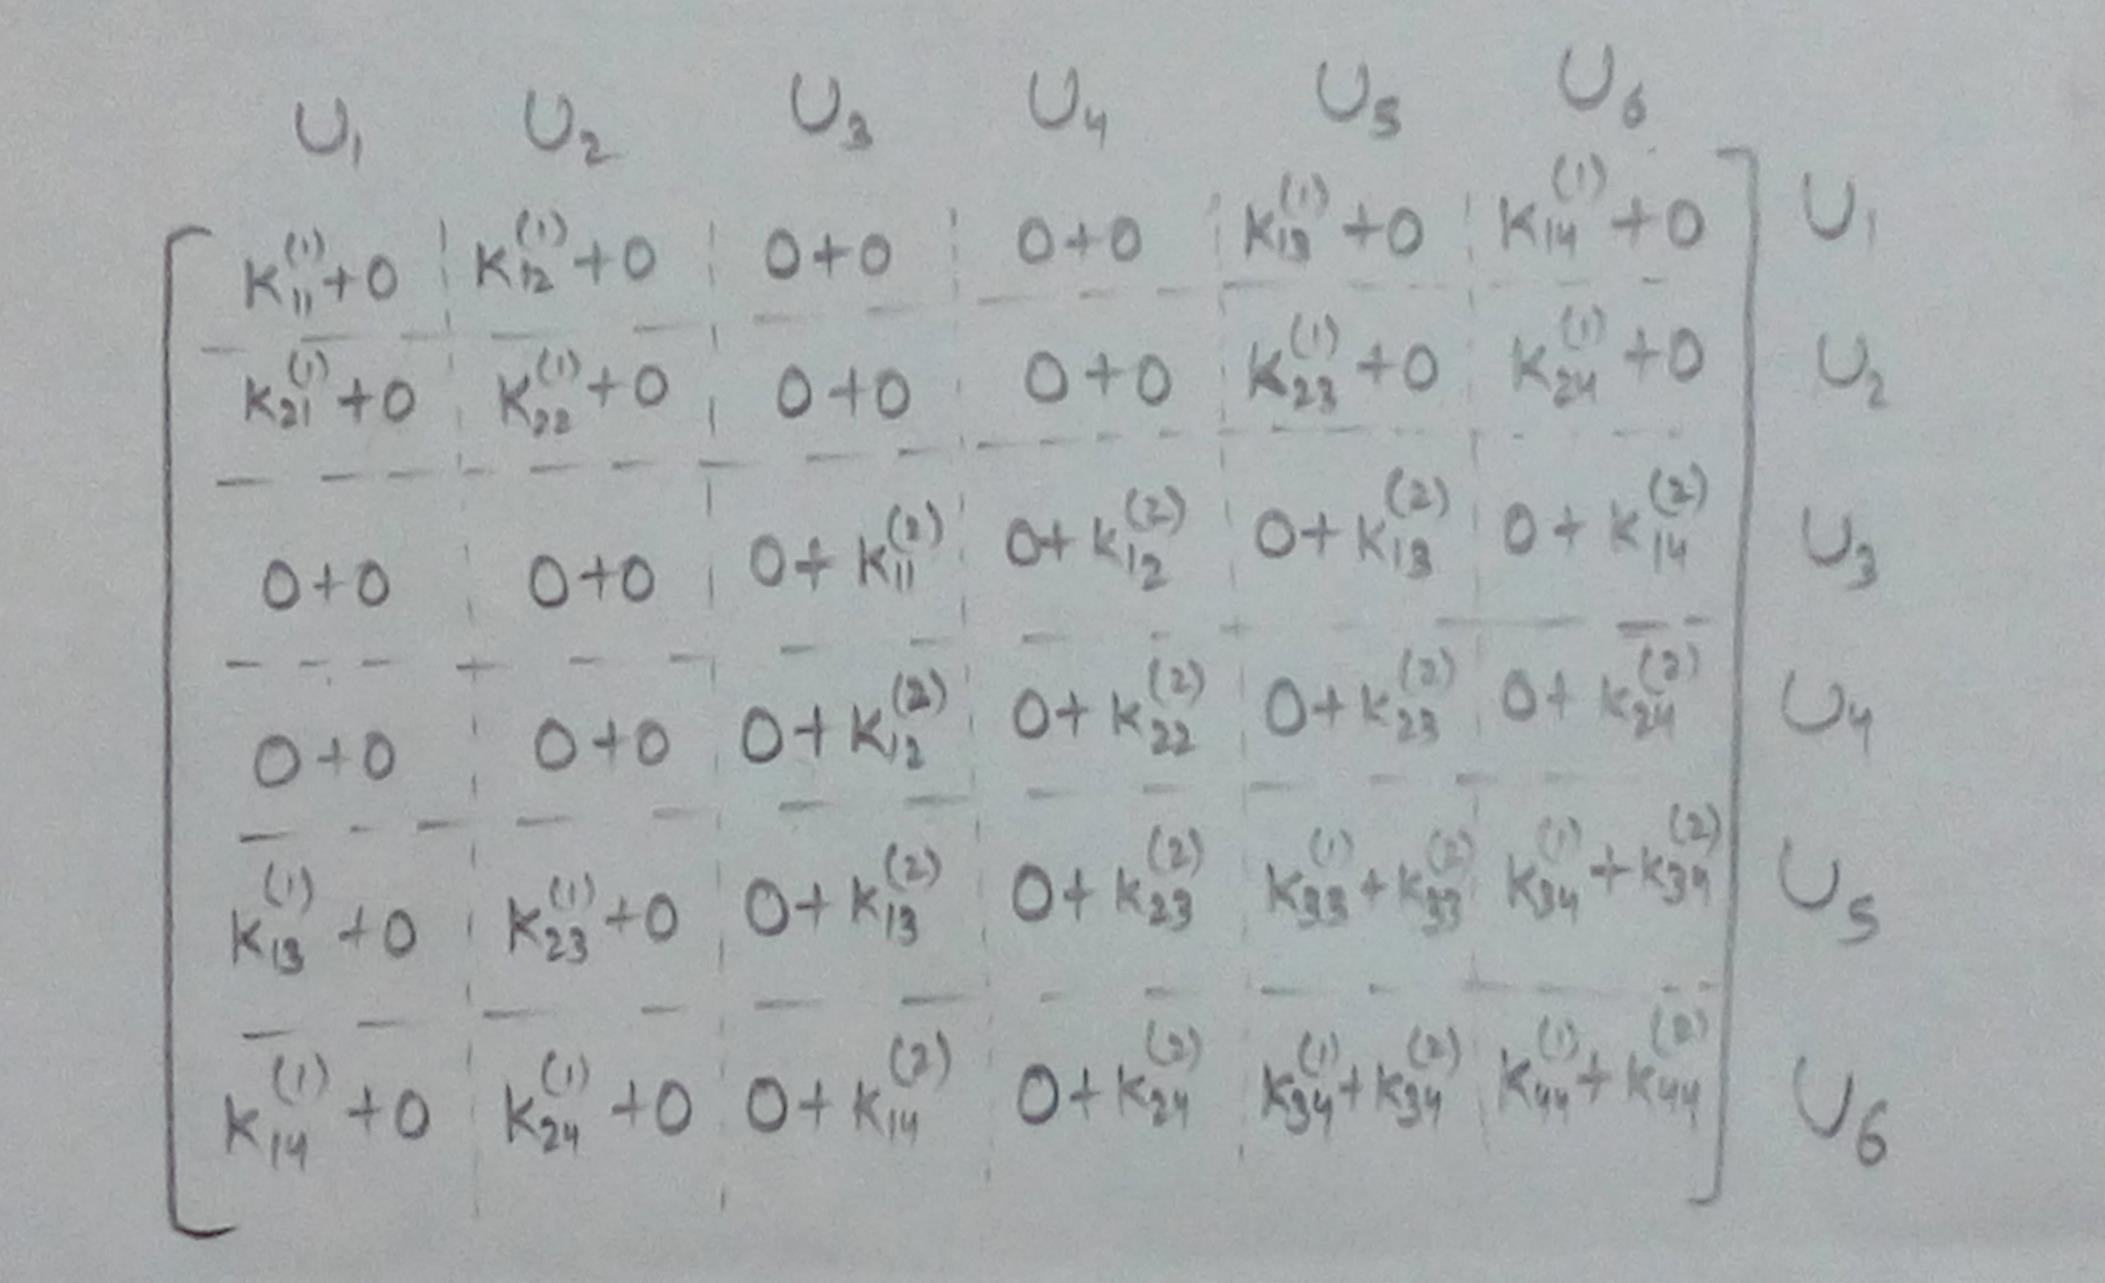 U₁ U₂ U₃ U₄ U₅ U₆
K₁₁⁽¹⁾+0 K₁₂⁽¹⁾+0 0+0 0+0 K₁₃⁽¹⁾+0 K₁₄⁽¹⁾+0 U₁
K₂₁⁽¹⁾+0 K₂₂⁽¹⁾+0 0+0 0+0 K₂₃⁽¹⁾+0 K₂₄⁽¹⁾+0 U₂
0+0 0+0 0+K₁₁⁽²⁾ 0+K₁₂⁽²⁾ 0+K₁₃⁽²⁾ 0+K₁₄⁽²⁾ U₃
0+0 0+0 0+K₁₂⁽²⁾ 0+K₂₂⁽²⁾ 0+K₂₃⁽²⁾ 0+K₂₄⁽²⁾ U₄
K₁₃⁽¹⁾+0 K₂₃⁽¹⁾+0 0+K₁₃⁽²⁾ 0+K₂₃⁽²⁾ K₃₃⁽¹⁾+K₃₃⁽²⁾ K₃₄⁽¹⁾+K₃₄⁽²⁾ U₅
K₁₄⁽¹⁾+0 K₂₄⁽¹⁾+0 0+K₁₄⁽²⁾ 0+K₂₄⁽²⁾ K₃₄⁽¹⁾+K₃₄⁽²⁾ K₄₄⁽¹⁾+K₄₄⁽²⁾ U₆